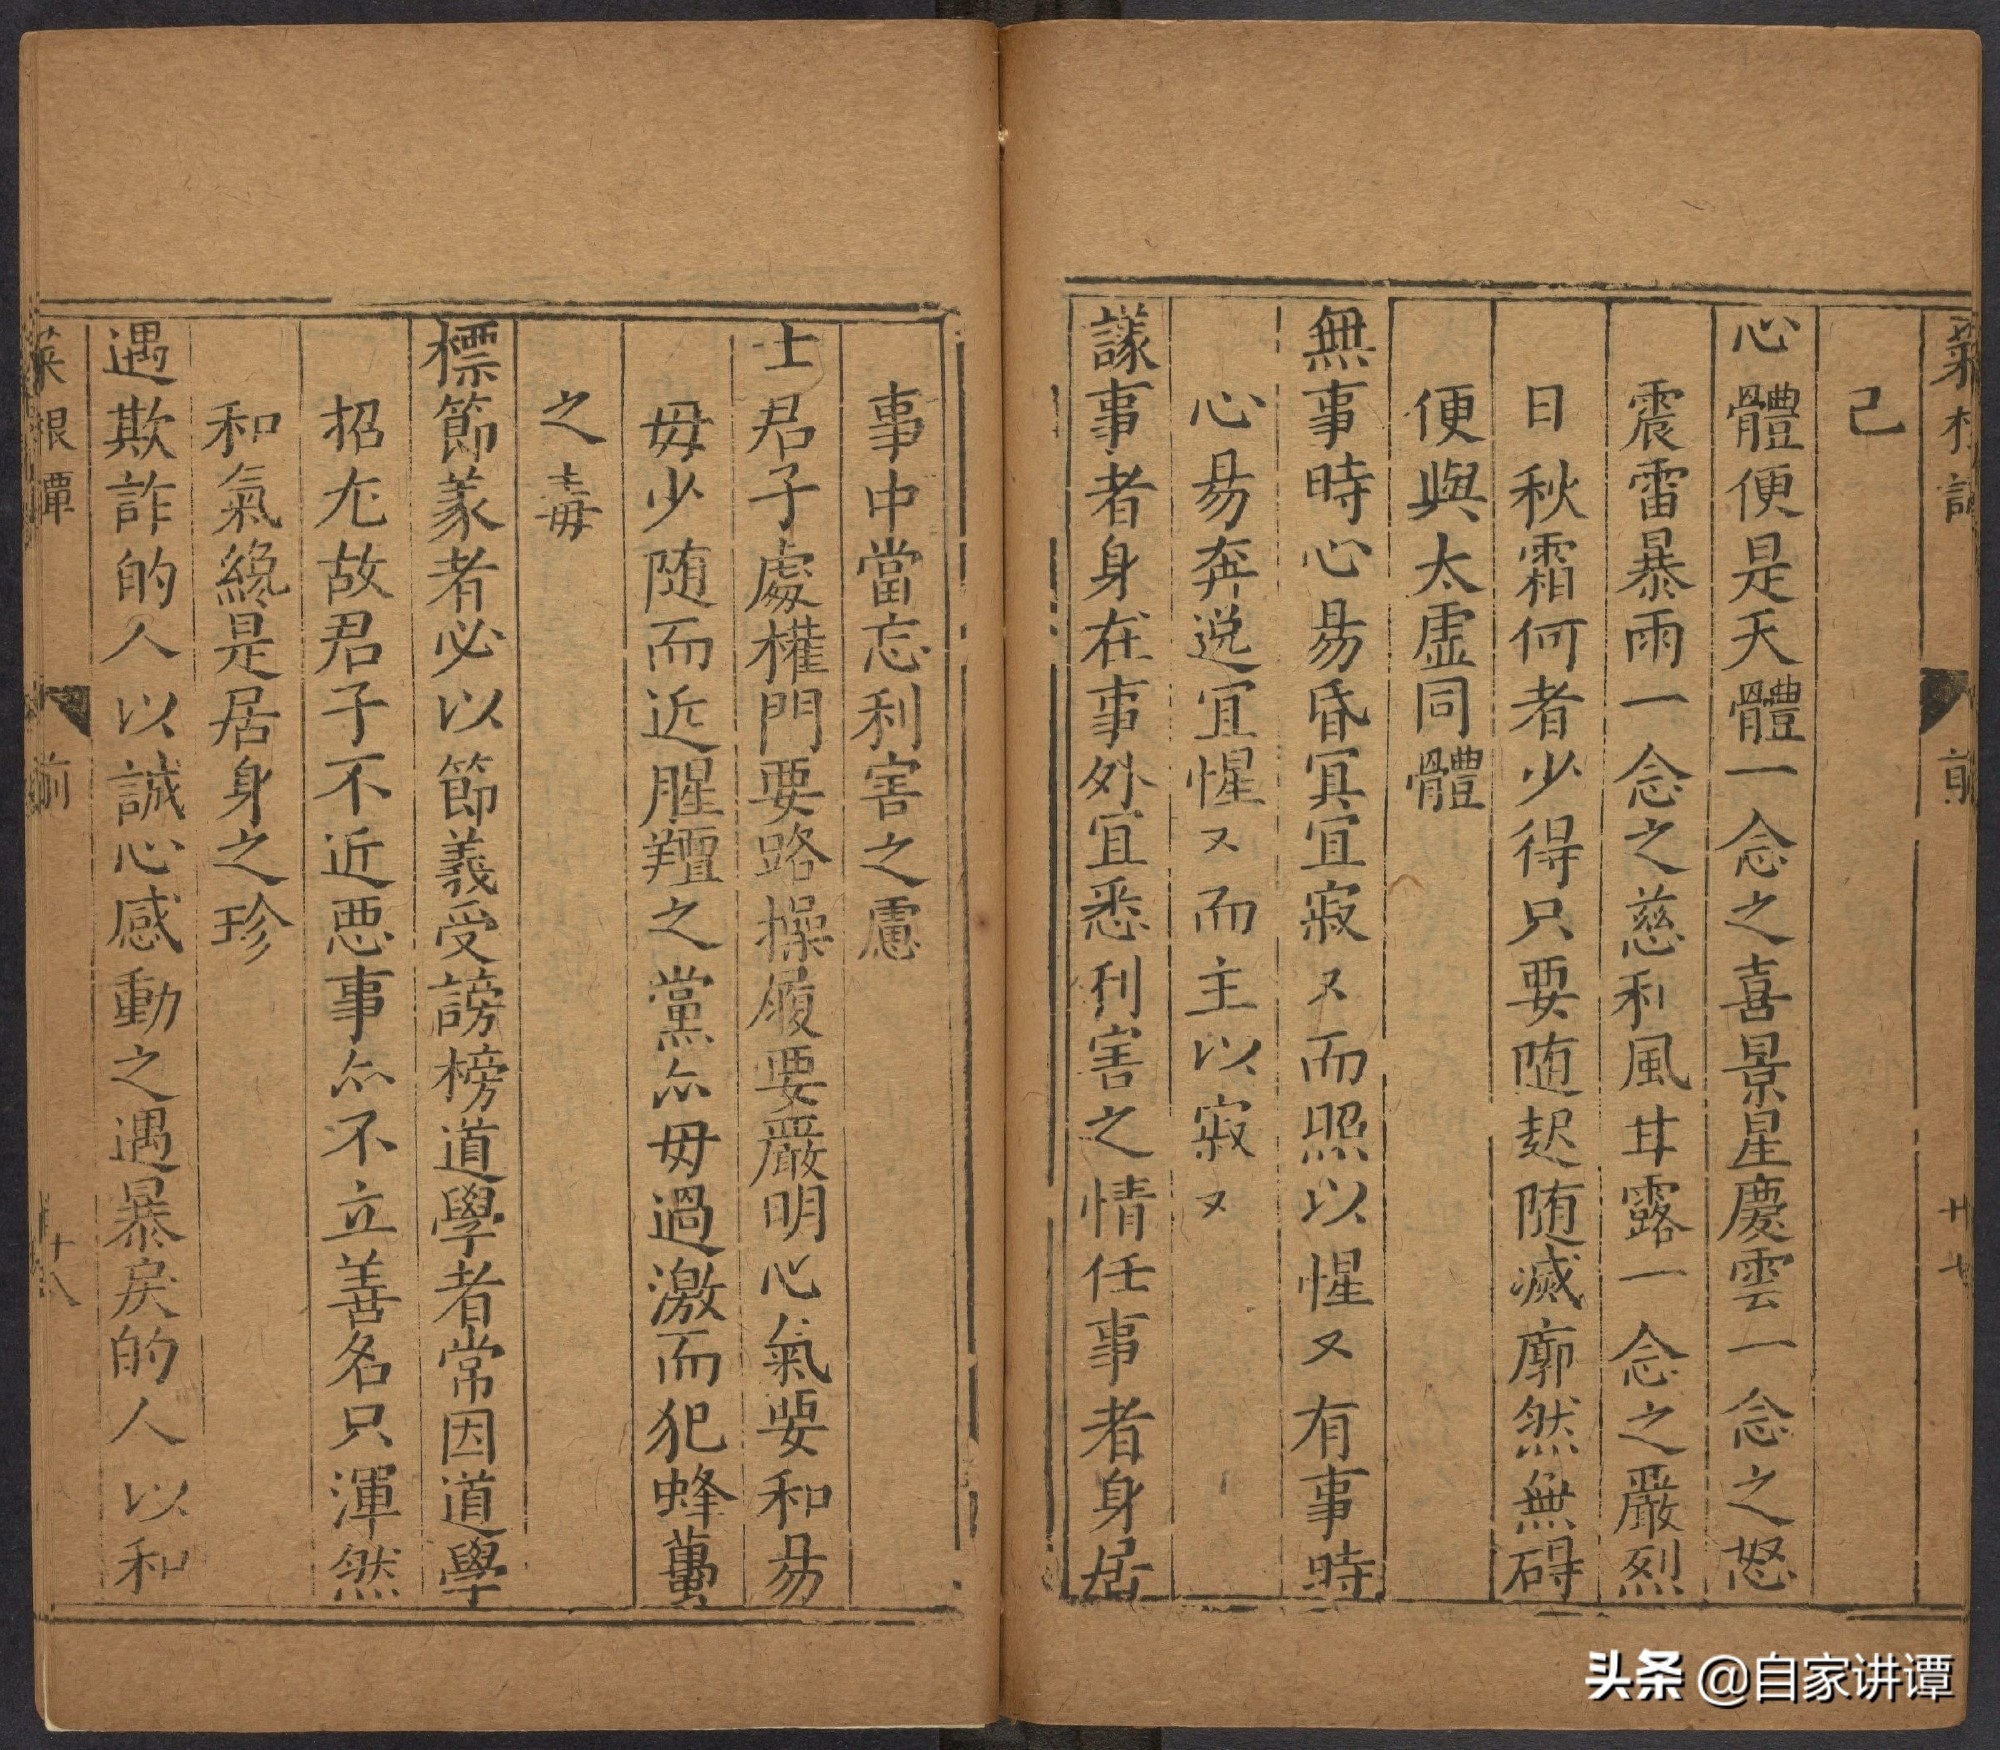 己
心體便是天體一念之喜景星慶雲一念之怒
震雷暴雨一念之慈和風甘露一念之嚴烈
日秋霜何者少得只要随起随滅廓然無碍
便與太虛同體
無事時心易昏冥宜寂又而照以惺又有事時
心易奔逸宜惺又而主以寂又
議事者身在事外宜悉利害之情任事者身居
事中當忘利害之慮
士君子處權門要路操履要嚴明心氣要和易
毋少随而近腥羶之黨亦毋過激而犯蜂蠆
之毒
標節義者必以節義受謗榜道學者常因道學
招尤故君子不近惡事亦不立善名只渾然
和氣纔是居身之珍
遇欺詐的人以誠心感動之遇暴戾的人以和
菜根譚
前
十八
头条 @自家讲谭